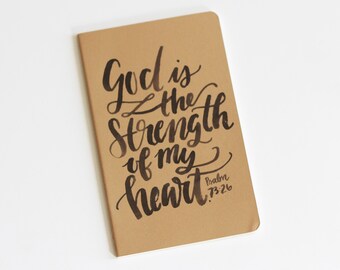 God is
the
strength
of my
heart.
Psalm
73:26